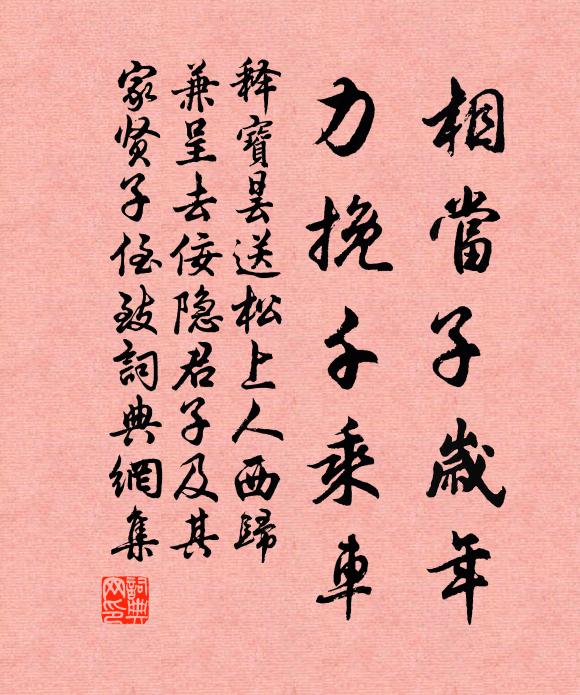 相當子歲年
力挽千乘車
释寶曇送松上人西歸
兼呈去佞隐君子及其
家贤子侄致詞典網集
詞典網印